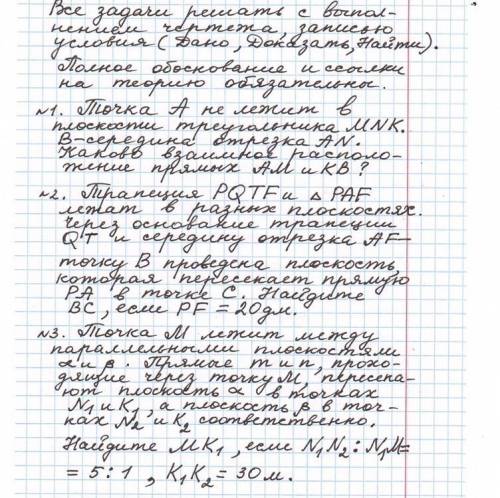 Все задачи решать с выпол-
нением чертежа, записью
условия (Дано, Доказать, Найти).
Полное обоснование и ссылки
на теорию обязательны.
№1. Точка А не лежит в
плоскости треугольника MNK.
В-середина отрезка AN.
Каково взаимное располо-
жение прямых АМ и КВ?
№2. Трапеция PQTF и △ PAF
лежат в разных плоскостях.
Через основание трапеции
QT и середину отрезка AF-
точку В проведена плоскость,
которая пересекает прямую
РА в точке С. Найдите
ВС, если PF = 20дм.
№3. Точка М лежит между
параллельными плоскостями
α и β. Прямые m и n, прохо-
дящие через точку М, пересека-
ют плоскость α в точках
N₁ и K₁, а плоскость β в точ-
ках N₂ и K₂ соответственно.
Найдите МK₁, если N₁N₂ : N₁M=
= 5 : 1, K₁K₂ = 30 м.